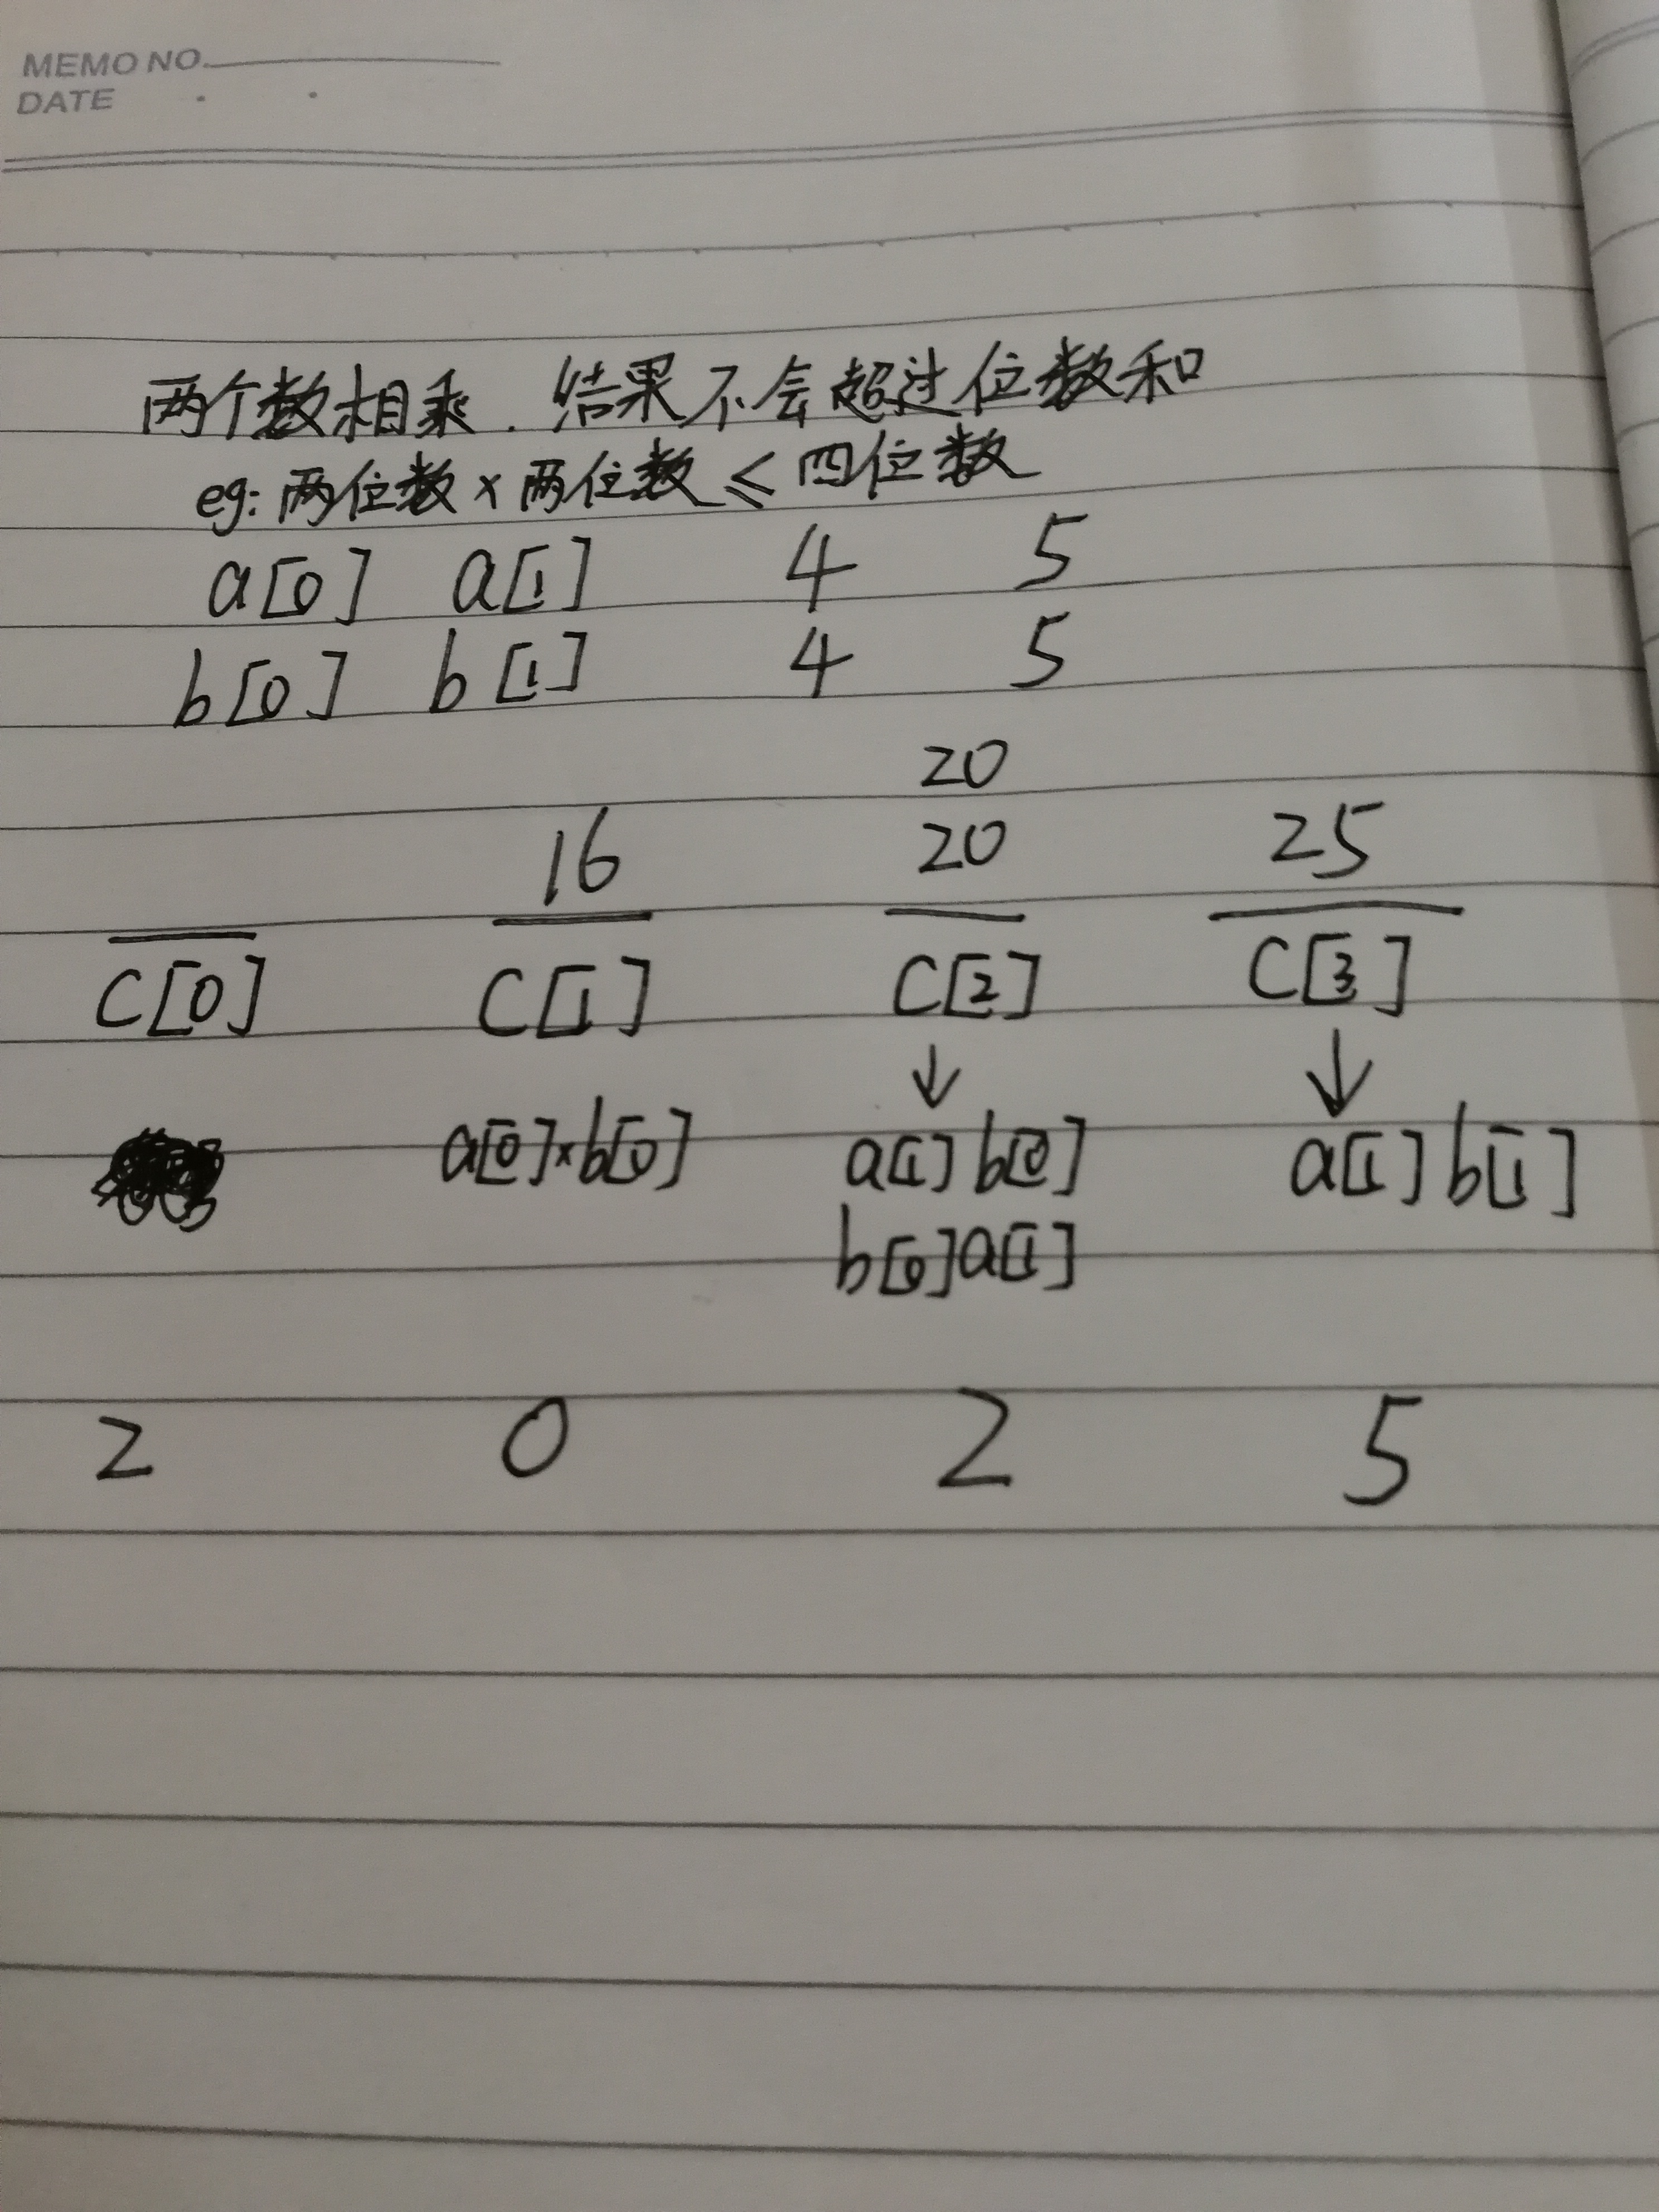 MEMO NO.
DATE . .
两个数相乘.结果不会超过位数和
eg:两位数×两位数≤四位数
a[0] a[1] 4 5
b[0] b[1] 4 5
20
16 20 25
C[0] C[1] C[2] C[3]
↓ ↓
a[0]×b[0] a[1]b[0] a[1]b[1]
b[0]a[1]
2 0 2 5